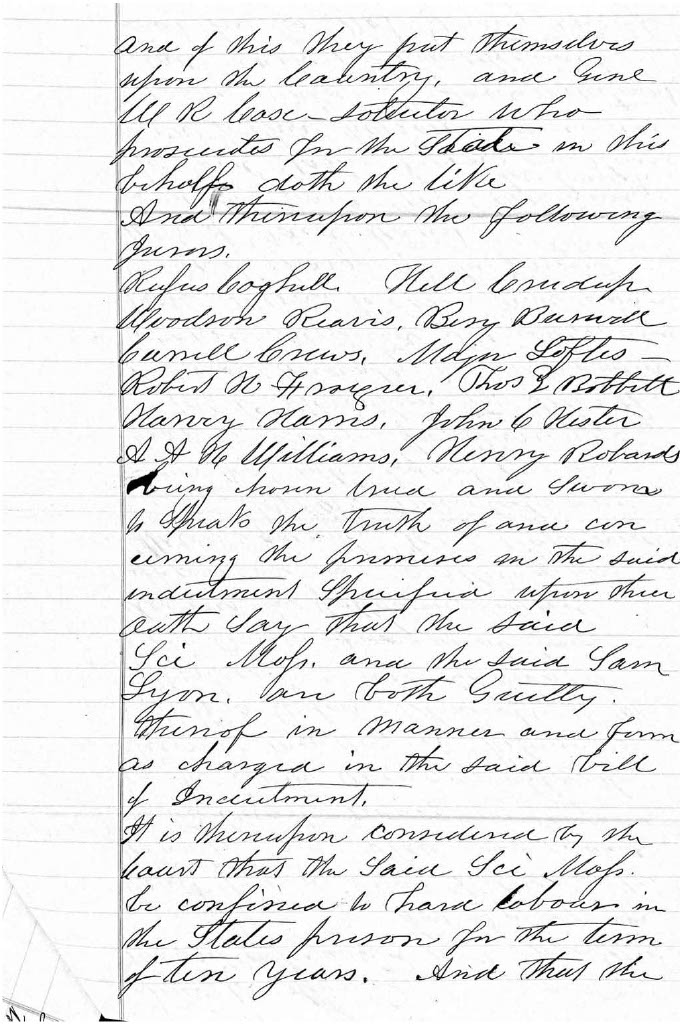 and of this they put themselves
upon the Country, and Genl
W R Coxe - solicitor who
prosecutes for the State in this
behalf doth the like
And thereupon the following
Jurors.
Rufus Coghill. Nell Crudup
Woodson Reavis, Beny Burwell
Carrell Crews, Major Loftes -
Robert W Frazier, Thos L Bobbitt
Harvey Harris, John C Hester
A A H Williams, Henry Robards
being chosen tried and sworn
to Speak the truth of and con
cerning the premises in the said
indictment Specified upon their
oath Say that the said
Sci Moss. and the said Sam
Lyon. are both Guilty.
thereof in manner and form
as charged in the said bill
of Indictment.
It is thereupon considered by the
Court that the Said Sci Moss.
be confined to hard labour in
the States prison for the term
of ten years. And that the